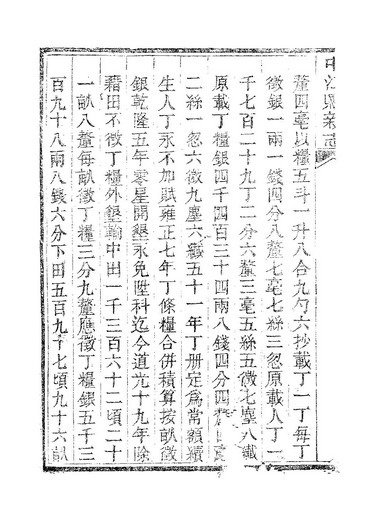 中江縣新志
釐四毫以糧五斗一升八合九勺六抄載丁一丁每丁
徵銀一兩一錢四分八釐七毫七絲三忽原載人丁一
千七百二十九丁二分六釐三毫五絲五微七塵八纎
原載丁糧銀四千四百三十四兩八錢四分四
二絲一忽六微九塵六纎五十一年丁册定爲常額續
生人丁永不加賦雍正七年丁條糧合併積算按畝徵
銀乾隆五年零星開墾永免陞科迄今道光十九年除
藉田不徵丁糧外墾輸中田一千三百六十二頃二十
一畝八釐每畝徵丁糧三分九釐應徵丁糧銀五千三
百九十八兩八錢六分下田五百九千七頃九十六畝